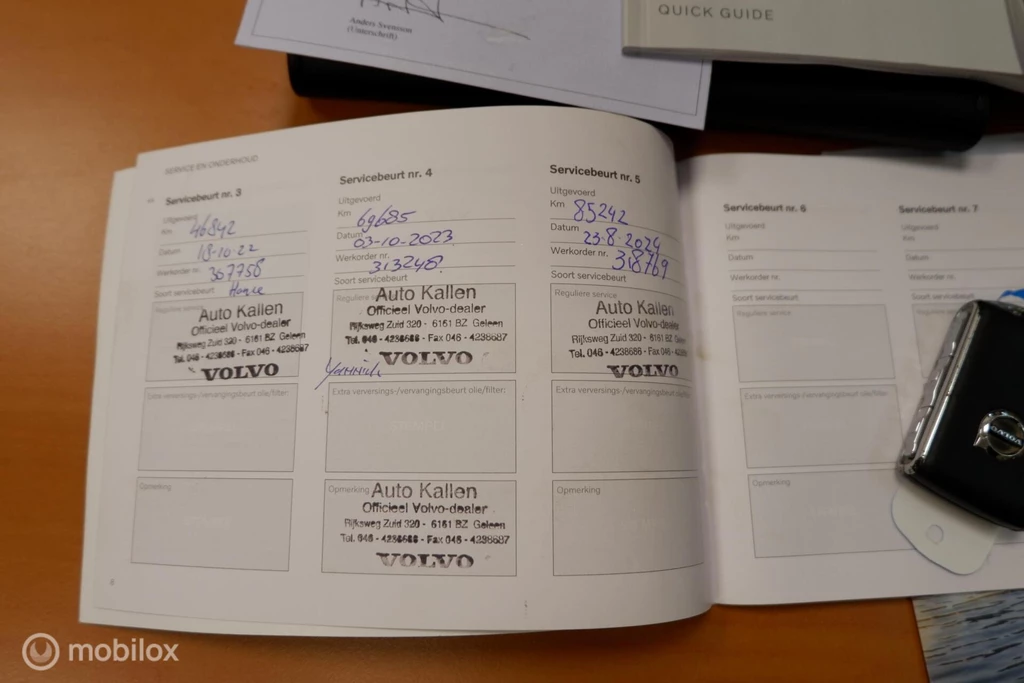 Anders Svensson
(Unterschrift)
QUICK GUIDE
SERVICE EN ONDERHOUD
Servicebeurt nr. 3
Uitgevoerd
Km 46842
Datum 18-10-22
Werkorder nr. 307758
Soort servicebeurt
Reguliere service
Auto Kallen
Officieel Volvo-dealer
Rijksweg Zuid 320 - 6161 BZ Geleen
Tel. 046 - 4238686 - Fax 046 - 4238687
VOLVO
Extra verversings-/vervangingsbeurt olie/filter:
Opmerking
6
Servicebeurt nr. 4
Uitgevoerd
Km 69685
Datum 03-10-2023
Werkorder nr. 313248
Soort servicebeurt
Reguliere service
Auto Kallen
Officieel Volvo-dealer
Rijksweg Zuid 320 - 6161 BZ Geleen
Tel. 046 - 4238686 - Fax 046 - 4238687
VOLVO
Extra verversings-/vervangingsbeurt olie/filter:
Opmerking
Auto Kallen
Officieel Volvo-dealer
Rijksweg Zuid 320 - 6161 BZ Geleen
Tel. 046 - 4238686 - Fax 046 - 4238687
VOLVO
Servicebeurt nr. 5
Uitgevoerd
Km 85242
Datum 23-8-2024
Werkorder nr. 318769
Soort servicebeurt
Reguliere service
Auto Kallen
Officieel Volvo-dealer
Rijksweg Zuid 320 - 6161 BZ Geleen
Tel. 046 - 4238686 - Fax 046 - 4238687
VOLVO
Extra verversings-/vervangingsbeurt olie/filter:
Opmerking
Servicebeurt nr. 6
Uitgevoerd
Km
Datum
Werkorder nr.
Soort servicebeurt
Reguliere service
Extra verversings-/vervangingsbeurt olie/filter:
Opmerking
Servicebeurt nr. 7
Uitgevoerd
Km
Datum
Werkorder nr.
Soort servicebeurt
Reguliere service
VOLVO
mobilox